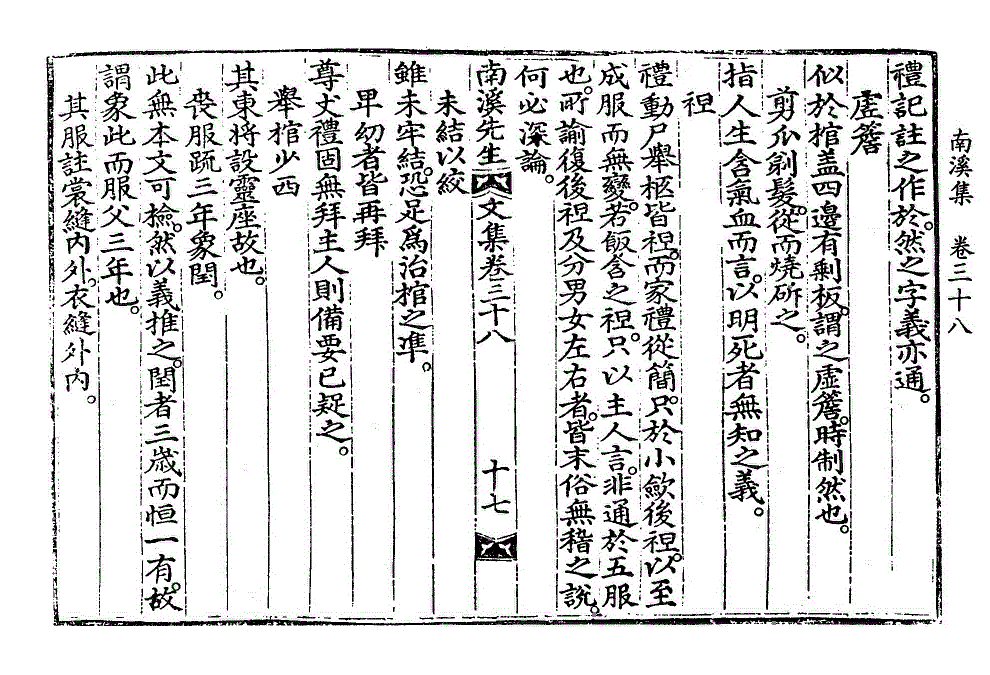 南溪集　卷三十八
禮記註之作於。然之字義亦通。
虛簷
似於棺盖四邊有剩板。謂之虛簷。時制然也。
剪爪剔髮。從而燒斫之。
指人生含氣血而言。以明死者無知之義。
袒
禮動尸舉柩皆袒。而家禮從簡。只於小歛後袒。以至
成服而無變。若飯含之袒。只以主人言。非通於五服
也。所諭復後袒及分男女左右者。皆末俗無稽之說。
何必深論。
南溪先生文集卷三十八　十七
未結以絞
雖未牢結。恐足爲治棺之凖。
卑幼者皆再拜
尊丈禮固無拜。主人則備要已疑之。
舉棺少西
其東將設靈座故也。
喪服疏三年象閏。
此無本文可檢。然以義推之。閏者三歲而恒一有。故
謂象此而服父三年也。
其服註裳縫內外。衣縫外內。